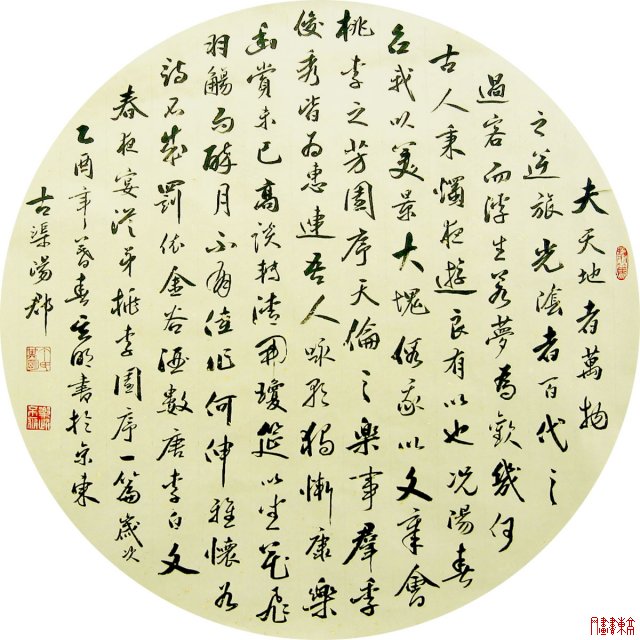 夫天地者萬物
之逆旅光陰者百代之
過客而浮生若夢為歡幾何
古人秉燭夜遊良有以也況陽春
召我以美景大塊假我以文章會
桃李之芳園序天倫之樂事羣季
俊秀皆為惠連吾人詠歌獨慚康樂
幽賞未已高談轉清開瓊筵以坐花飛
羽觴而醉月不有佳作何伸雅懷如
詩不成罰依金谷酒數唐李白文
春夜宴從弟桃李園序一篇歲次
乙酉年暮春其明書於京東
古渠陽郡